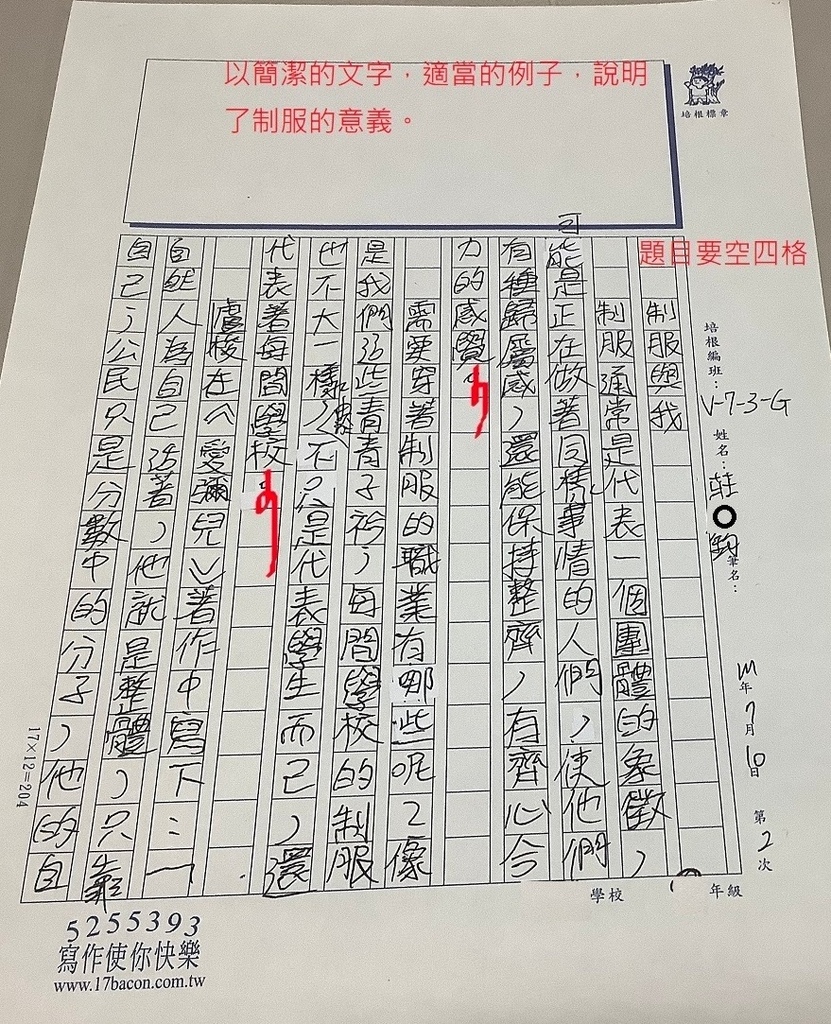 以簡潔的文字，適當的例子，說明
了制服的意義。
培根標章
題目要空四格
培根編班：V-7-3-G 姓名：莊 鈞 筆名：
年7月10日 第2次
學校 年級
制服與我
制服通常是代表一個團體的象徵，
可能是正在做著同樣事情的人們，使他們
有種歸屬感，還能保持整齊，有齊心合
力的感覺。
需要穿著制服的職業有哪些呢？像
是我們這些青青子衿，每間學校的制服
也不大一樣，不只是代表學生而已，還
代表著每間學校。
盧梭在《愛彌兒》著作中寫下：「
自然人為自己活著，他就是整體，只靠
自己，公民只是分數中的分子，他的自
17×12=204
5255393
寫作使你快樂
www.17bacon.com.tw